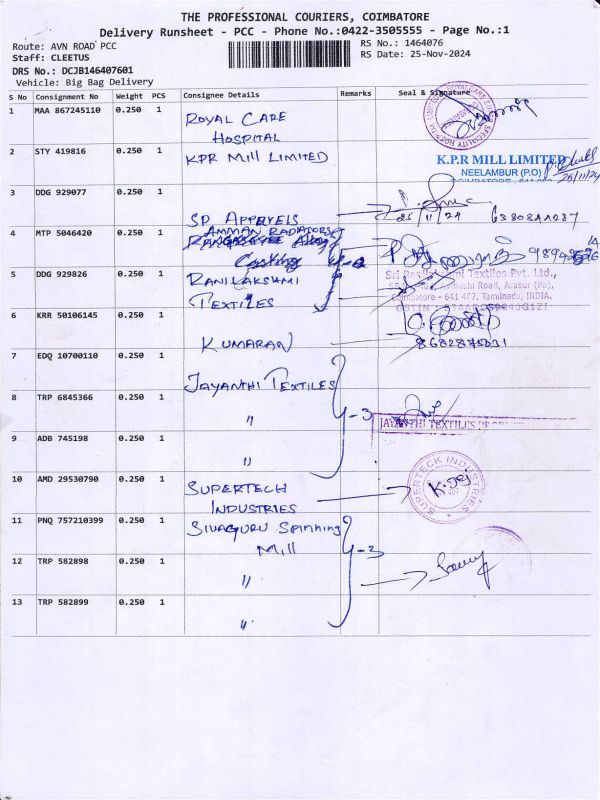 THE PROFESSIONAL COURIERS, COIMBATORE
Delivery Runsheet - PCC - Phone No.:0422-3505555 - Page No.:1
Route: AVN ROAD PCC
RS No.: 1464076
Staff: CLEETUS
RS Date: 25-Nov-2024
DRS No.: DCJB146407601
Vehicle: Big Bag Delivery
S No Consignment No Weight PCS Consignee Details Remarks Seal & Signature
1 MAA 867245110 0.250 1 ROYAL CARE
HOSPITAL
2 STY 419816 0.250 1 KPR MILL LIMITED
K.P.R MILL LIMITED
NEELAMBUR (P.O)
25/11/24
3 DDG 929077 0.250 1
SD APPAYELS 25/11/24
4 MTP 5046420 0.250 1 AMMAN RADIATORS
5 DDG 929826 0.250 1 RANILAKSHMI
TEXTILES
Textiles Pvt. Ltd.,
Road, Arasur (Po),
Coimbatore - 641 407, Tamilnadu, INDIA.
6 KRR 50106145 0.250 1
KUMARAN
7 EDQ 10700110 0.250 1 JAYANTHI TEXTILES
8 TRP 6845366 0.250 1 " -3
JAYANTHI TEXTILES
9 ADB 745198 0.250 1 "
10 AMD 29530790 0.250 1 SUPERTECH
INDUSTRIES
SUPERTECK INDUSTRIES
11 PNQ 757210399 0.250 1 SIVAGURU SPINNING
MILL -3
12 TRP 582898 0.250 1 "
13 TRP 582899 0.250 1 "